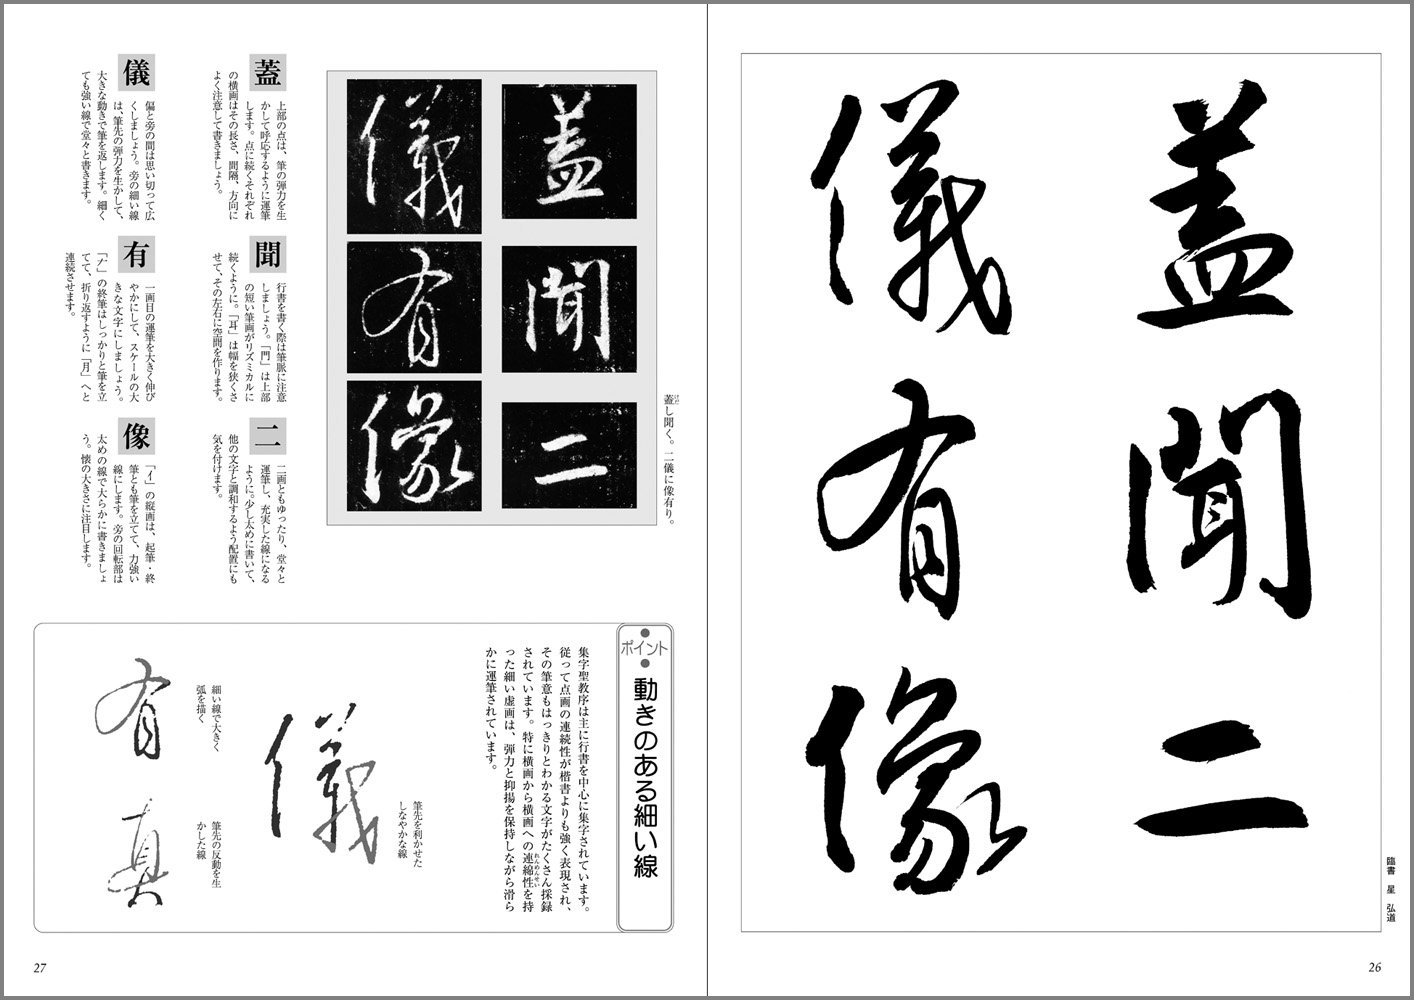 蓋聞二
儀有像
臨書 星 弘道
26
蓋聞二
儀有像
蓋し聞く。二儀に像有り。
けだ
蓋
上部の点は、筆の弾力を生
かして呼応するように運筆
します。点に続くそれぞれ
の横画はその長さ、間隔、方向に
よく注意して書きましょう。
聞
行書を書く際は筆脈に注意
しましょう。「門」は上部
の短い筆画がリズミカルに
続くように。「耳」は幅を狭くさ
せて、その左右に空間を作ります。
二
二画ともゆったり、堂々と
運筆し、充実した線になる
ように。少し太めに書いて、
他の文字と調和するよう配置にも
気を付けます。
儀
偏と旁の間は思い切って広
くしましょう。旁の細い線
は、筆先の弾力を生かして、
大きな動きで筆を返します。細く
ても強い線で堂々と書きます。
有
一画目の運筆を大きく伸び
やかにして、スケールの大
きな文字にしましょう。
「ナ」の終筆はしっかりと筆を立
てて、折り返すように「月」へと
連続させます。
像
「イ」の縦画は、起筆・終
筆とも筆を立てて、力強い
線にします。旁の回転部は
太めの線で大らかに書きましょ
う。懐の大きさに注目します。
ポイント
動きのある細い線
集字聖教序は主に行書を中心に集字されています。
従って点画の連続性が楷書よりも強く表現され、
その筆意もはっきりとわかる文字がたくさん採録
されています。特に横画から横画への連綿性を持
れんめんせい
った細い虚画は、弾力と抑揚を保持しながら滑ら
かに運筆されています。
筆先を利かせた
しなやかな線
儀
細い線で大きく
弧を描く
有
筆先の反動を生
かした線
真
27